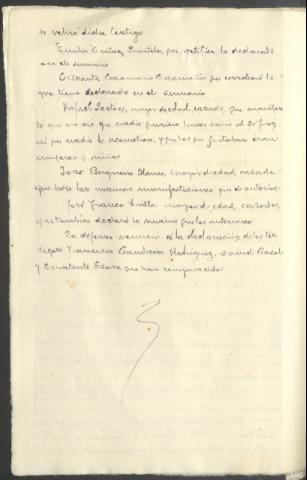 se refirió dicho testigo
Emilia Núñez Pruñtela, que ratifica lo declarado
en el sumario
Caamaño Caamaño que corroboró lo
que tiene declarado en el sumario
Rafael Lestón, mayor de edad, casado, que manifes
tó que no vio que nadie quisiera hacer daño al Sr Juez
ni que nadie lo acometiera, y que los que gritaban eran
mujeres y niños
José Brugueiro Blanco, mayor de edad, casado
que hace las mismas manifestaciones que el anterior
José Franco Brilla mayor de edad, casado,
y también declaró lo mismo que los anteriores
La defensa renunció a la declaración de los tes
tigos Francisco Rodríguez, Daniel
y Constante que no han comparecido